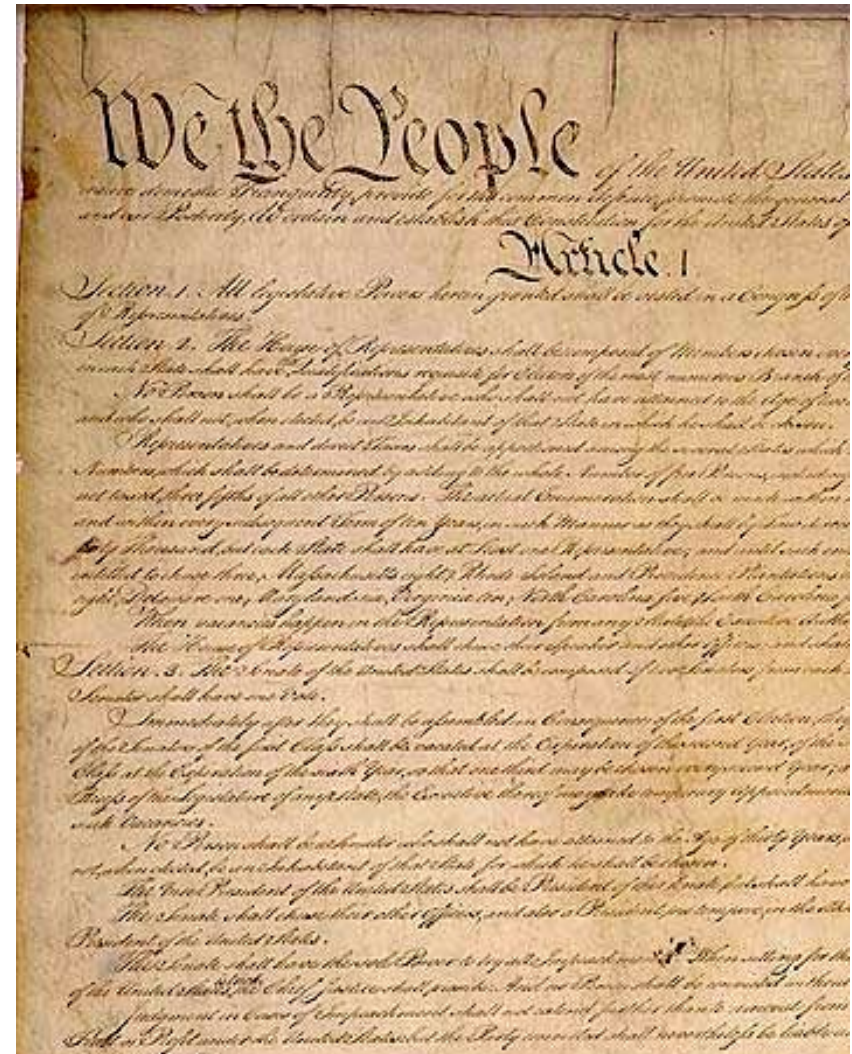 We the People of the United States
insure domestic Tranquility, provide for the common defence, promote the general
and our Posterity, do ordain and establish this Constitution for the United States of
Article. I.
Section. 1. All legislative Powers herein granted shall be vested in a Congress of the
of Representatives.
Section. 2. The House of Representatives shall be composed of Members chosen every
in each State shall have Qualifications requisite for Electors of the most numerous Branch of the
No Person shall be a Representative who shall not have attained to the Age of twenty
and who shall not, when elected, be an Inhabitant of that State in which he shall be chosen.
Representatives and direct Taxes shall be apportioned among the several States which
Numbers, which shall be determined by adding to the whole Number of free Persons, including
not taxed, three fifths of all other Persons. The actual Enumeration shall be made within
and within every subsequent Term of ten Years, in such Manner as they shall by Law direct.
thirty Thousand, but each State shall have at Least one Representative; and until such
entitled to chuse three, Massachusetts eight, Rhode Island and Providence Plantations
eight, Delaware one, Maryland six, Virginia ten, North Carolina five, South Carolina
When vacancies happen in the Representation from any State, the Executive Authority
The House of Representatives shall chuse their Speaker and other Officers; and shall
Section. 3. The Senate of the United States shall be composed of two Senators from each
Senator shall have one Vote.
Immediately after they shall be assembled in Consequence of the first Election, they
of the Senators of the first Class shall be vacated at the Expiration of the second Year, of the
Class at the Expiration of the sixth Year, so that one third may be chosen every second Year;
Recess of the Legislature of any State, the Executive thereof may make temporary Appointments
such Vacancies.
No Person shall be a Senator who shall not have attained to the Age of thirty Years,
not, when elected, be an Inhabitant of that State for which he shall be chosen.
The Vice President of the United States shall be President of the Senate, but shall have
The Senate shall chuse their other Officers, and also a President pro tempore, in the
President of the United States.
The Senate shall have the sole Power to try all Impeachments. When sitting for that
of the United States, the Chief Justice shall preside: And no Person shall be convicted without
Judgment in Cases of Impeachment shall not extend further than to removal from
Trust or Profit under the United States: but the Party convicted shall nevertheless be liable